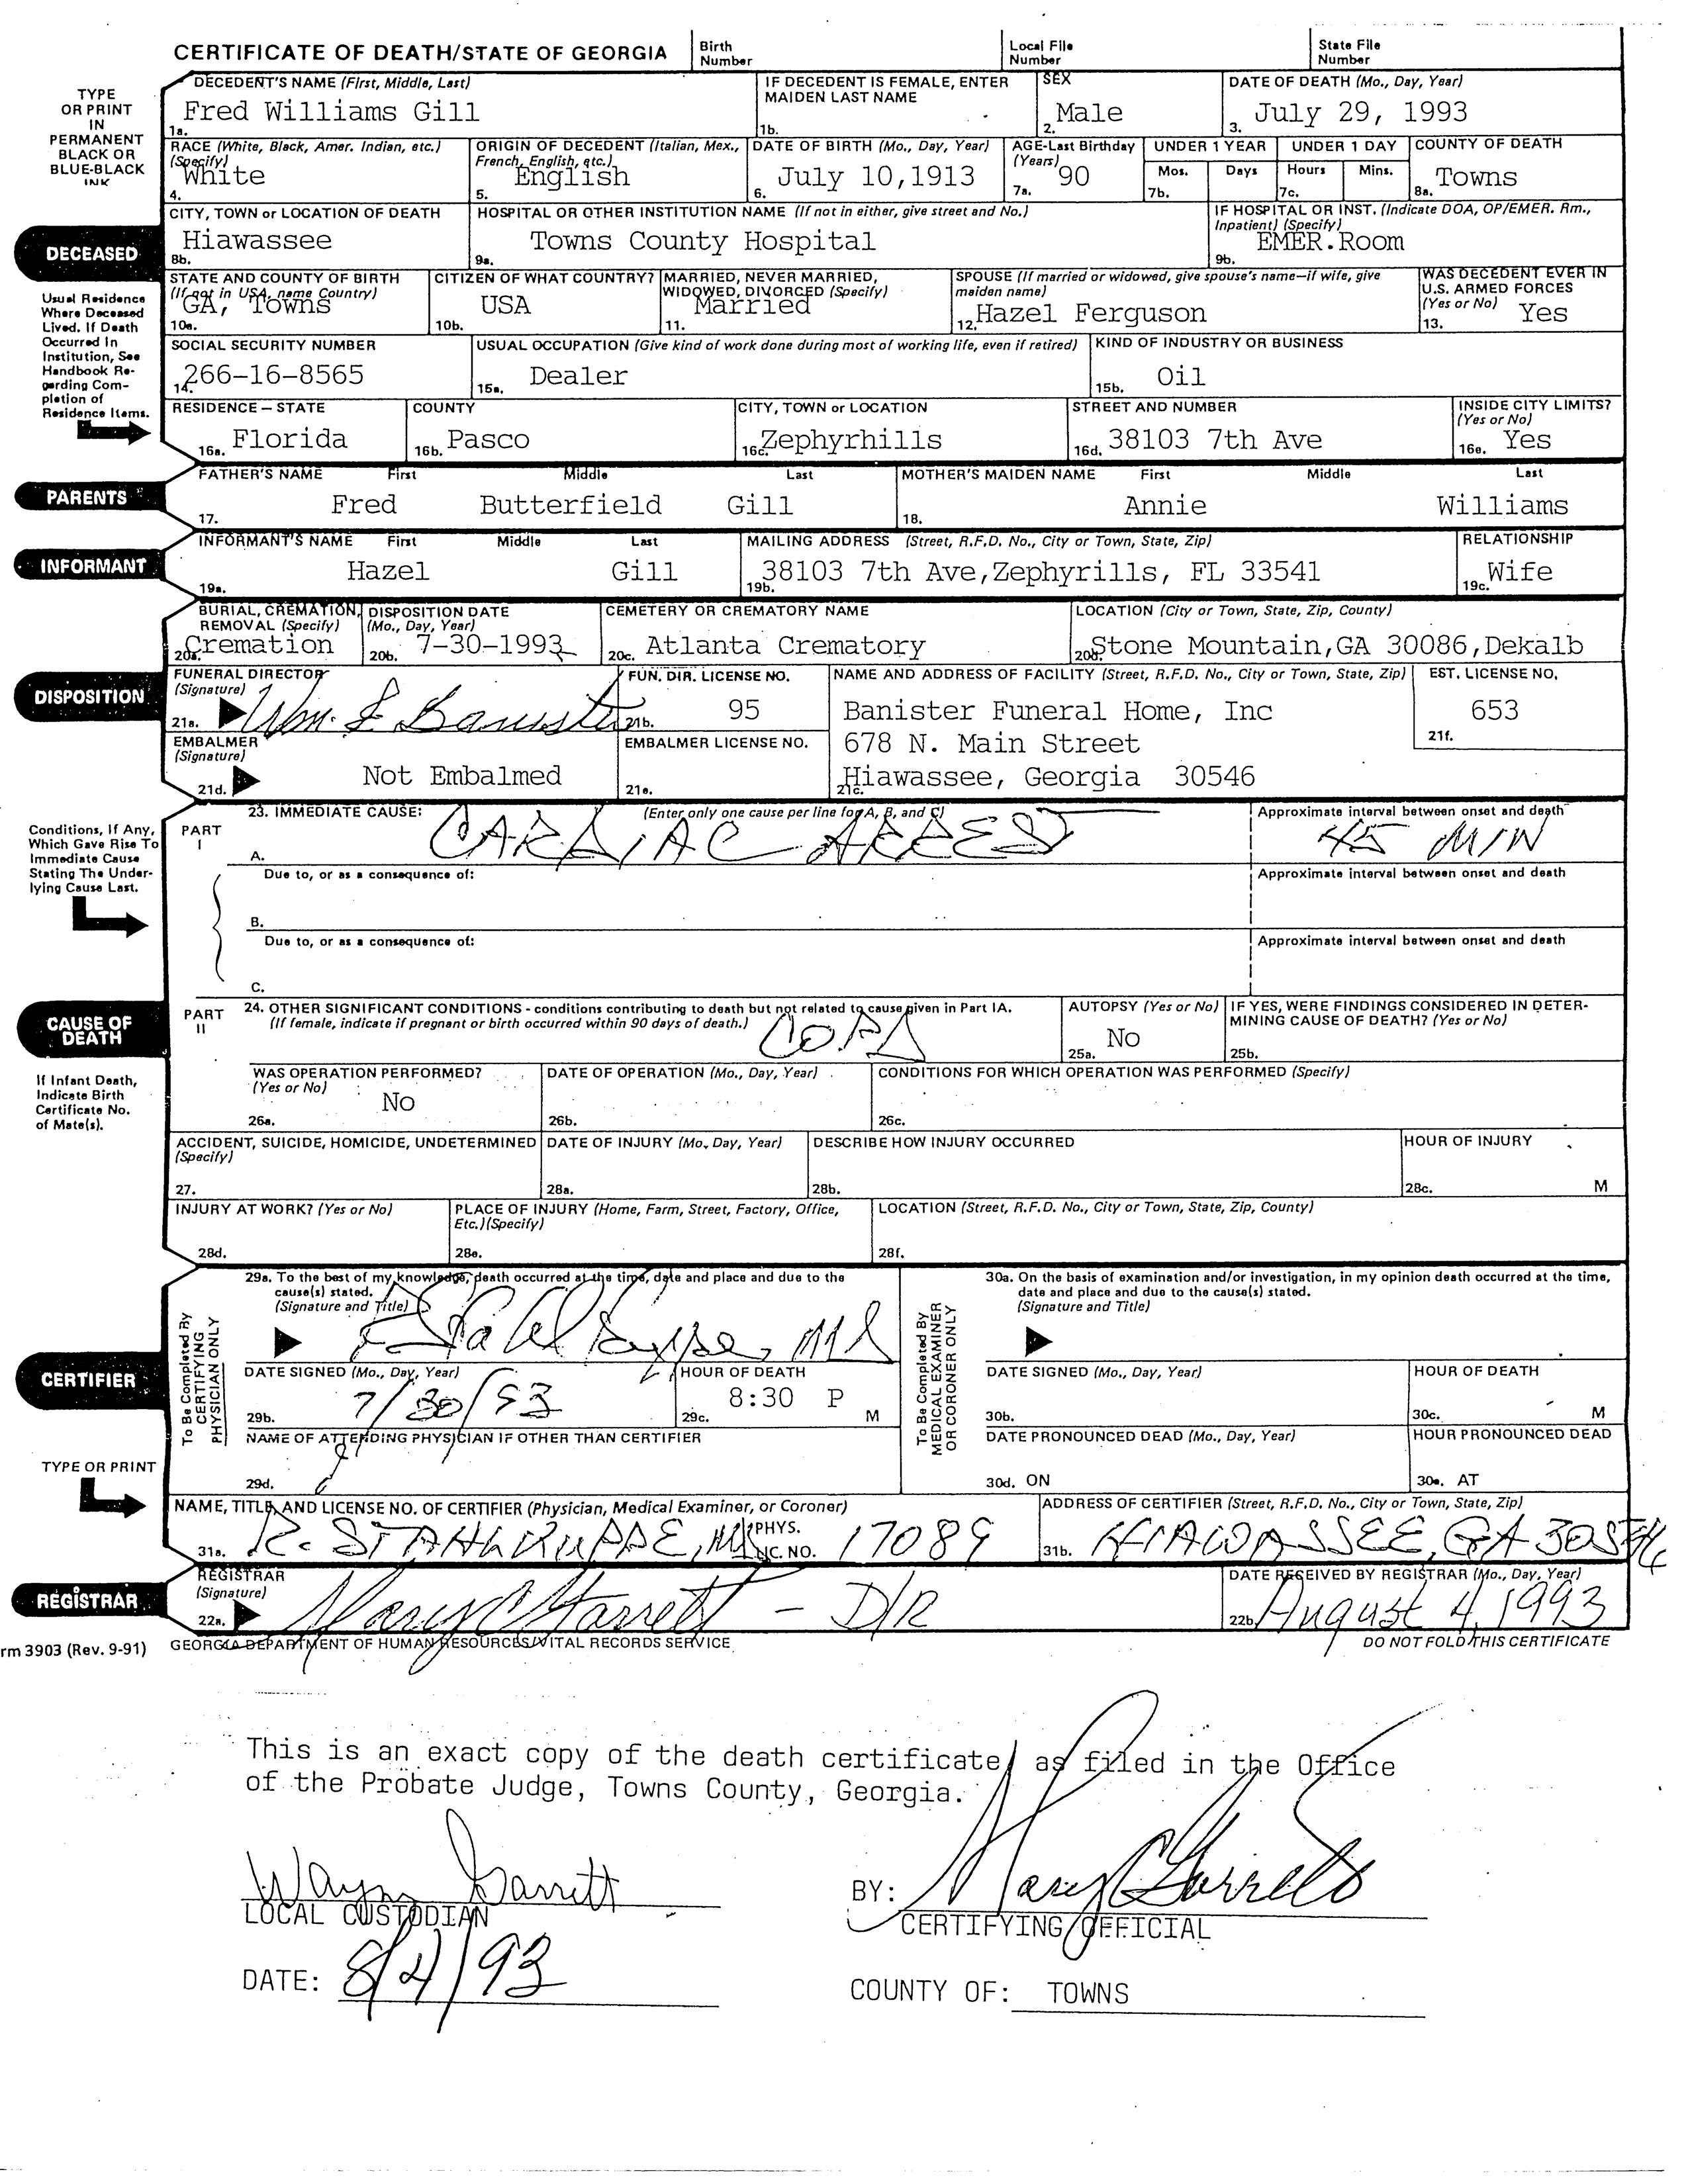 CERTIFICATE OF DEATH/STATE OF GEORGIA
Birth Number
Local File Number
State File Number
TYPE OR PRINT IN PERMANENT BLACK OR BLUE-BLACK INK
DECEDENT'S NAME (First, Middle, Last)
1a. Fred Williams Gill
IF DECEDENT IS FEMALE, ENTER MAIDEN LAST NAME
1b.
SEX
2. Male
DATE OF DEATH (Mo., Day, Year)
3. July 29, 1993
RACE (White, Black, Amer. Indian, etc.) (Specify)
4. White
ORIGIN OF DECEDENT (Italian, Mex., French, English, etc.)
5. English
DATE OF BIRTH (Mo., Day, Year)
6. July 10,1913
AGE-Last Birthday (Years)
7a. 90
UNDER 1 YEAR
Mos. Days
7b.
UNDER 1 DAY
Hours Mins.
7c.
COUNTY OF DEATH
8a. Towns
DECEASED
CITY, TOWN or LOCATION OF DEATH
8b. Hiawassee
HOSPITAL OR OTHER INSTITUTION NAME (If not in either, give street and No.)
9a. Towns County Hospital
IF HOSPITAL OR INST. (Indicate DOA, OP/EMER. Rm., Inpatient) (Specify)
9b. EMER.Room
Usual Residence Where Deceased Lived. If Death Occurred In Institution, See Handbook Regarding Completion of Residence Items.
STATE AND COUNTY OF BIRTH (If not in USA, name Country)
10a. GA, Towns
CITIZEN OF WHAT COUNTRY?
10b. USA
MARRIED, NEVER MARRIED, WIDOWED, DIVORCED (Specify)
11. Married
SPOUSE (If married or widowed, give spouse's name—if wife, give maiden name)
12. Hazel Ferguson
WAS DECEDENT EVER IN U.S. ARMED FORCES (Yes or No)
13. Yes
SOCIAL SECURITY NUMBER
14. 266-16-8565
USUAL OCCUPATION (Give kind of work done during most of working life, even if retired)
15a. Dealer
KIND OF INDUSTRY OR BUSINESS
15b. Oil
RESIDENCE – STATE
16a. Florida
COUNTY
16b. Pasco
CITY, TOWN or LOCATION
16c. Zephyrhills
STREET AND NUMBER
16d. 38103 7th Ave
INSIDE CITY LIMITS? (Yes or No)
16e. Yes
PARENTS
FATHER'S NAME First Middle Last
17. Fred Butterfield Gill
MOTHER'S MAIDEN NAME First Middle Last
18. Annie Williams
INFORMANT
INFORMANT'S NAME First Middle Last
19a. Hazel Gill
MAILING ADDRESS (Street, R.F.D. No., City or Town, State, Zip)
19b. 38103 7th Ave,Zephyrills, FL 33541
RELATIONSHIP
19c. Wife
DISPOSITION
BURIAL, CREMATION, REMOVAL (Specify)
20a. Cremation
DISPOSITION DATE (Mo., Day, Year)
20b. 7-30-1993
CEMETERY OR CREMATORY NAME
20c. Atlanta Crematory
LOCATION (City or Town, State, Zip, County)
20d. Stone Mountain,GA 30086,Dekalb
FUNERAL DIRECTOR (Signature)
21a. Wm. L Banister
FUN. DIR. LICENSE NO.
21b. 95
NAME AND ADDRESS OF FACILITY (Street, R.F.D. No., City or Town, State, Zip)
Banister Funeral Home, Inc
678 N. Main Street
21c. Hiawassee, Georgia 30546
EST. LICENSE NO.
653
21f.
EMBALMER (Signature)
21d. Not Embalmed
EMBALMER LICENSE NO.
21e.
Conditions, If Any, Which Gave Rise To Immediate Cause Stating The Underlying Cause Last.
PART I
23. IMMEDIATE CAUSE: (Enter only one cause per line for A, B, and C)
A. CARDIAC ARREST
Approximate interval between onset and death
45 MIN
Due to, or as a consequence of:
Approximate interval between onset and death
B.
Due to, or as a consequence of:
Approximate interval between onset and death
C.
CAUSE OF DEATH
PART II
24. OTHER SIGNIFICANT CONDITIONS - conditions contributing to death but not related to cause given in Part IA.
(If female, indicate if pregnant or birth occurred within 90 days of death.)
COPD
AUTOPSY (Yes or No)
25a. No
IF YES, WERE FINDINGS CONSIDERED IN DETERMINING CAUSE OF DEATH? (Yes or No)
25b.
If Infant Death, Indicate Birth Certificate No. of Mate(s).
WAS OPERATION PERFORMED? (Yes or No)
26a. No
DATE OF OPERATION (Mo., Day, Year)
26b.
CONDITIONS FOR WHICH OPERATION WAS PERFORMED (Specify)
26c.
ACCIDENT, SUICIDE, HOMICIDE, UNDETERMINED (Specify)
27.
DATE OF INJURY (Mo., Day, Year)
28a.
DESCRIBE HOW INJURY OCCURRED
28b.
HOUR OF INJURY
28c. M
INJURY AT WORK? (Yes or No)
28d.
PLACE OF INJURY (Home, Farm, Street, Factory, Office, Etc.)(Specify)
28e.
LOCATION (Street, R.F.D. No., City or Town, State, Zip, County)
28f.
CERTIFIER
To Be Completed By CERTIFYING PHYSICIAN ONLY
29a. To the best of my knowledge, death occurred at the time, date and place and due to the cause(s) stated.
(Signature and Title)
MD
DATE SIGNED (Mo., Day, Year)
29b. 7/30/93
HOUR OF DEATH
29c. 8:30 P M
NAME OF ATTENDING PHYSICIAN IF OTHER THAN CERTIFIER
29d.
To Be Completed By MEDICAL EXAMINER OR CORONER ONLY
30a. On the basis of examination and/or investigation, in my opinion death occurred at the time, date and place and due to the cause(s) stated.
(Signature and Title)
DATE SIGNED (Mo., Day, Year)
30b.
HOUR OF DEATH
30c. M
DATE PRONOUNCED DEAD (Mo., Day, Year)
30d. ON
HOUR PRONOUNCED DEAD
30e. AT
TYPE OR PRINT
NAME, TITLE AND LICENSE NO. OF CERTIFIER (Physician, Medical Examiner, or Coroner)
31a. R. STAHLKUPPE, MD PHYS. LIC. NO. 17089
ADDRESS OF CERTIFIER (Street, R.F.D. No., City or Town, State, Zip)
31b. HIAWASSEE, GA 30546
REGISTRAR
REGISTRAR (Signature)
22a. Mary C Garrett - D/R
DATE RECEIVED BY REGISTRAR (Mo., Day, Year)
22b. August 4, 1993
rm 3903 (Rev. 9-91)
GEORGIA DEPARTMENT OF HUMAN RESOURCES/VITAL RECORDS SERVICE
DO NOT FOLD THIS CERTIFICATE
This is an exact copy of the death certificate as filed in the Office
of the Probate Judge, Towns County, Georgia.
Wayne Garrett
LOCAL CUSTODIAN
BY: Mary C Garrett
CERTIFYING OFFICIAL
DATE: 8/4/93
COUNTY OF: TOWNS